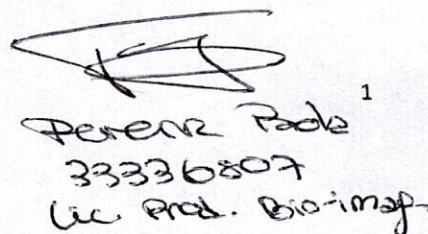 1
Pererz Paola
33336807
Lic. Prod. Bio-imag.